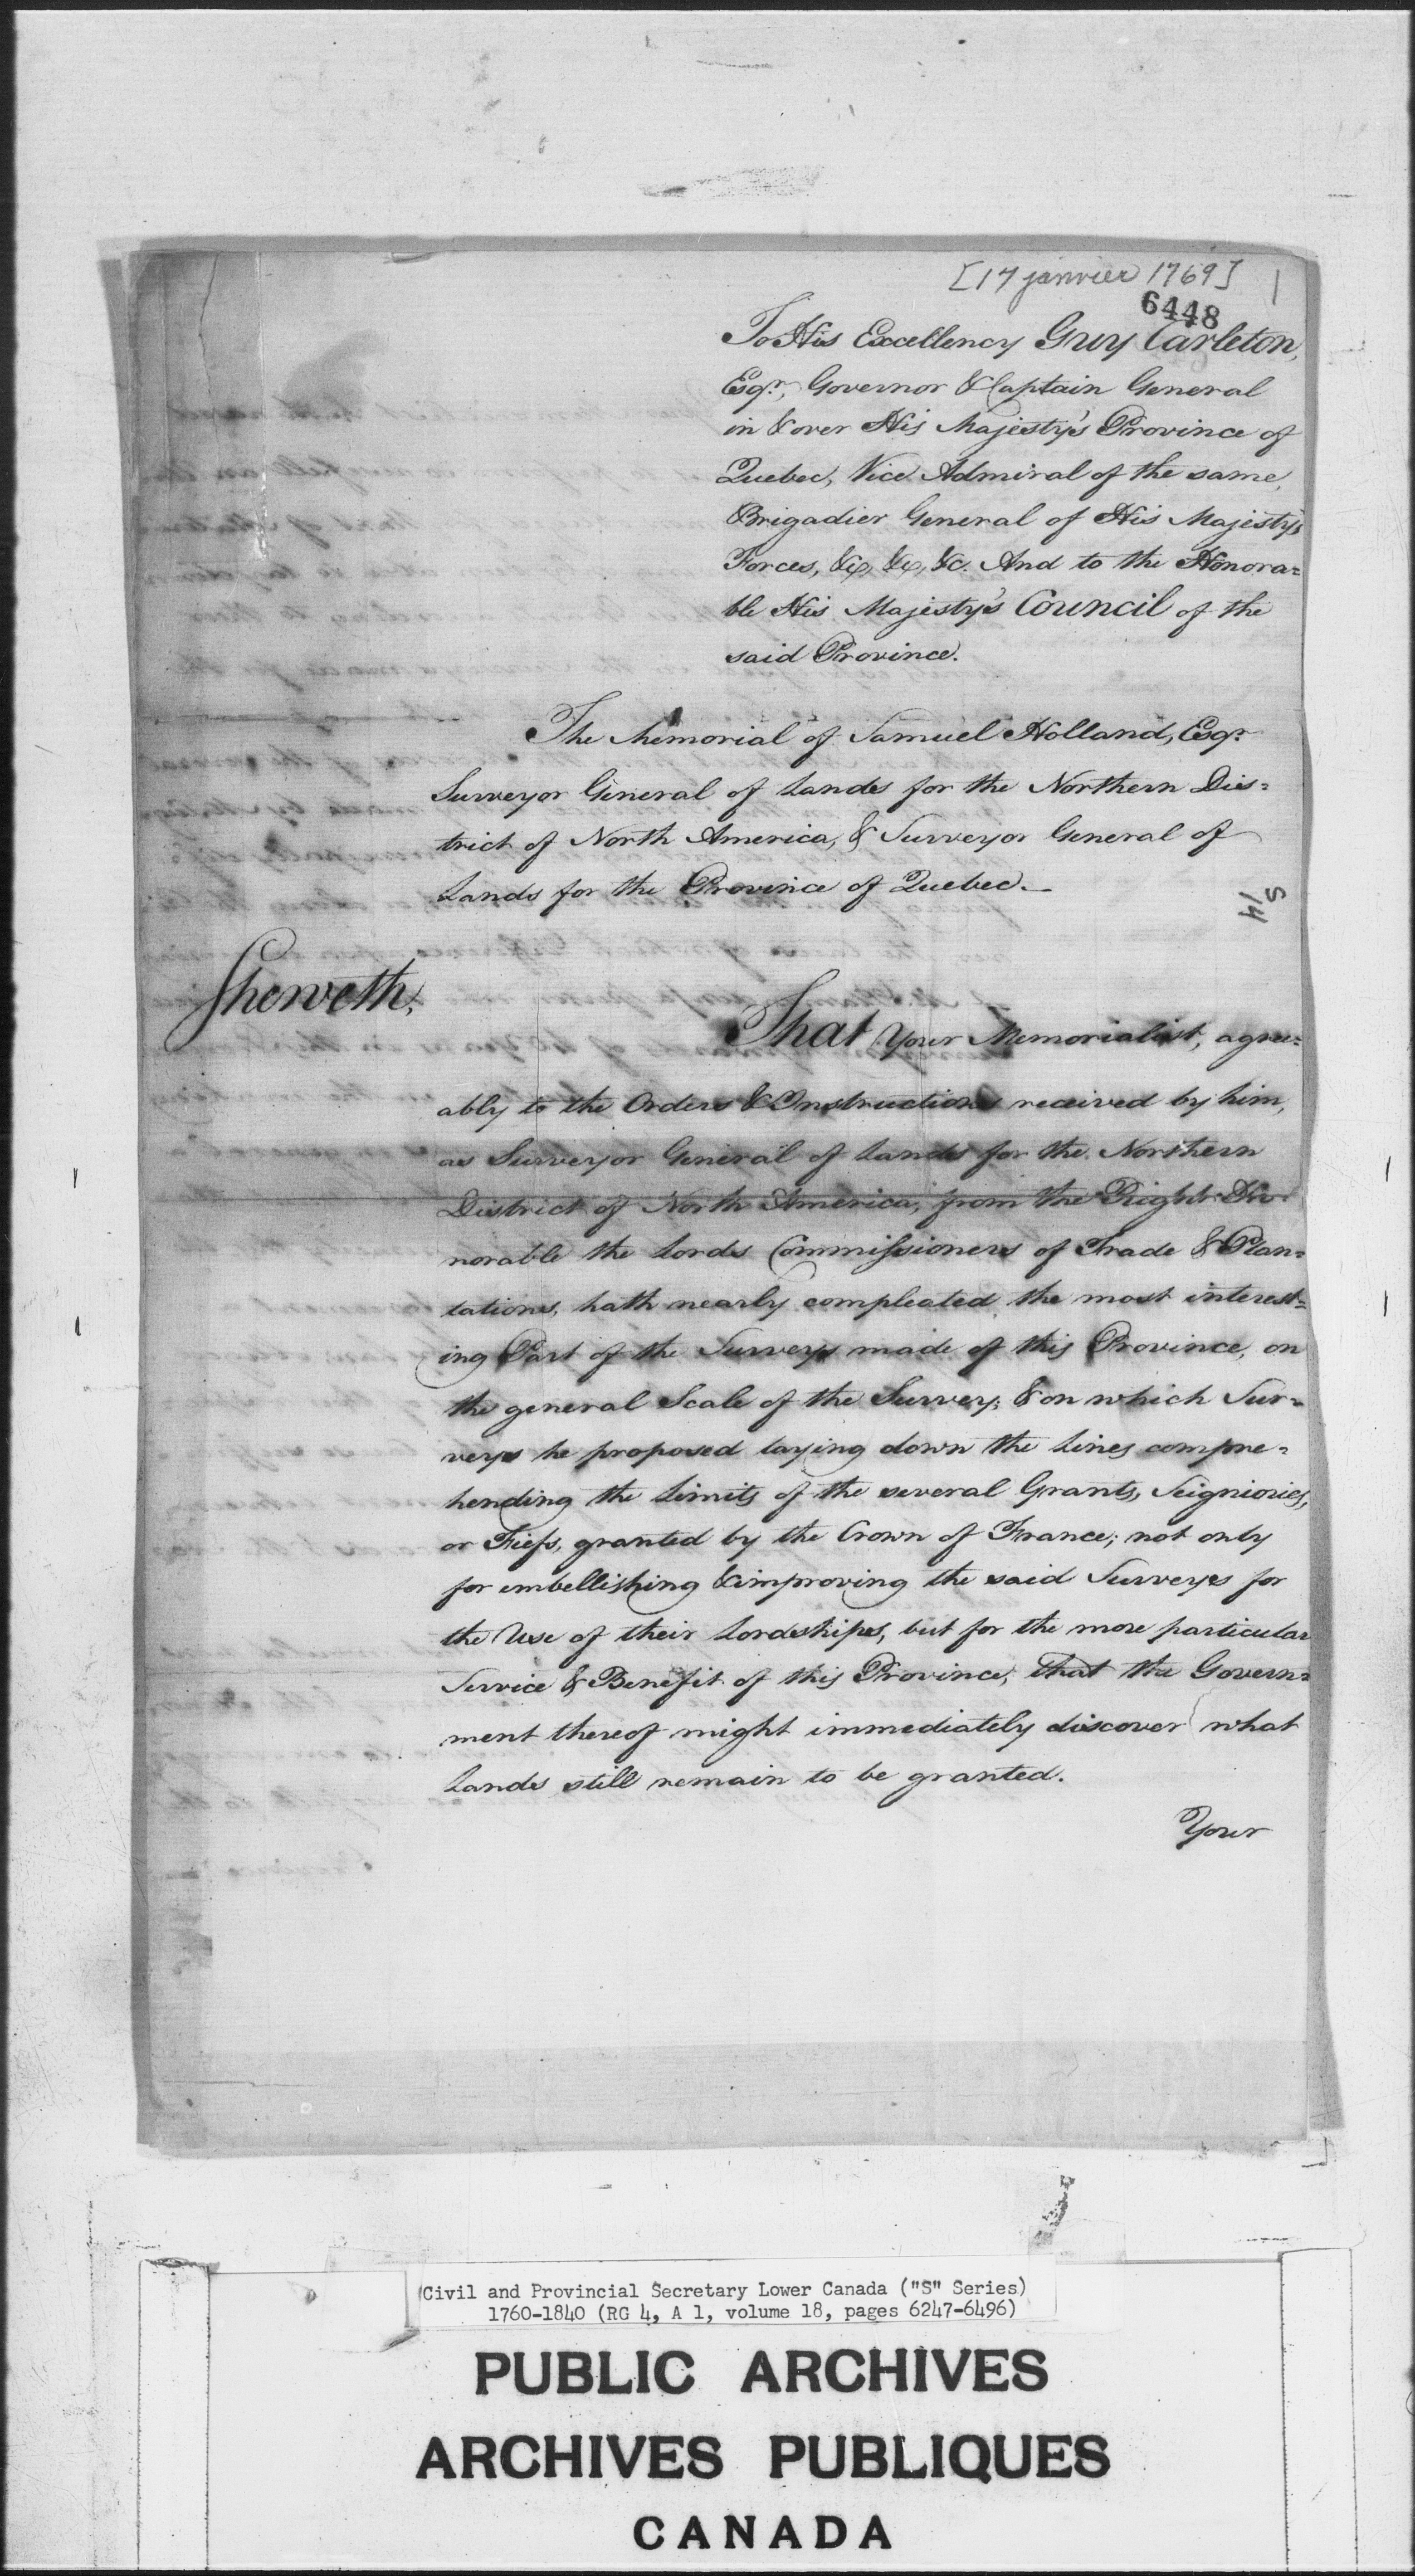 [17 janvier 1769]
6448
To His Excellency Guy Carleton,
Esqr., Governor & Captain General
in & over His Majesty's Province of
Quebec, Vice Admiral of the same,
Brigadier General of His Majesty's
Forces, &c, &c, &c. And to the Honora=
ble His Majesty's Council of the
said Province.
The Memorial of Samuel Holland, Esqr.
Surveyor General of Lands for the Northern Dis=
trict of North America, & Surveyor General of
Lands for the Province of Quebec.
S
14
Sheweth,
That Your Memorialist, agree=
ably to the Orders & Instructions received by him,
as Surveyor General of Lands for the Northern
District of North America, from the Right Ho=
norable the Lords Commissioners of Trade & Plan=
tations, hath nearly compleated the most interest=
ing Part of the Surveys made of this Province, on
the general Scale of the Survey; & on which Sur=
veys he proposed laying down the Lines compre=
hending the Limits of the several Grants, Seigniories,
or Fiefs, granted by the Crown of France; not only
for embellishing & improving the said Surveys for
the Use of their Lordships, but for the more particular
Service & Benefit of this Province, that the Govern=
ment thereof might immediately discover what
Lands still remain to be granted.
Your
Civil and Provincial Secretary Lower Canada ("S" Series)
1760-1840 (RG 4, A 1, volume 18, pages 6247-6496)
PUBLIC ARCHIVES
ARCHIVES PUBLIQUES
CANADA